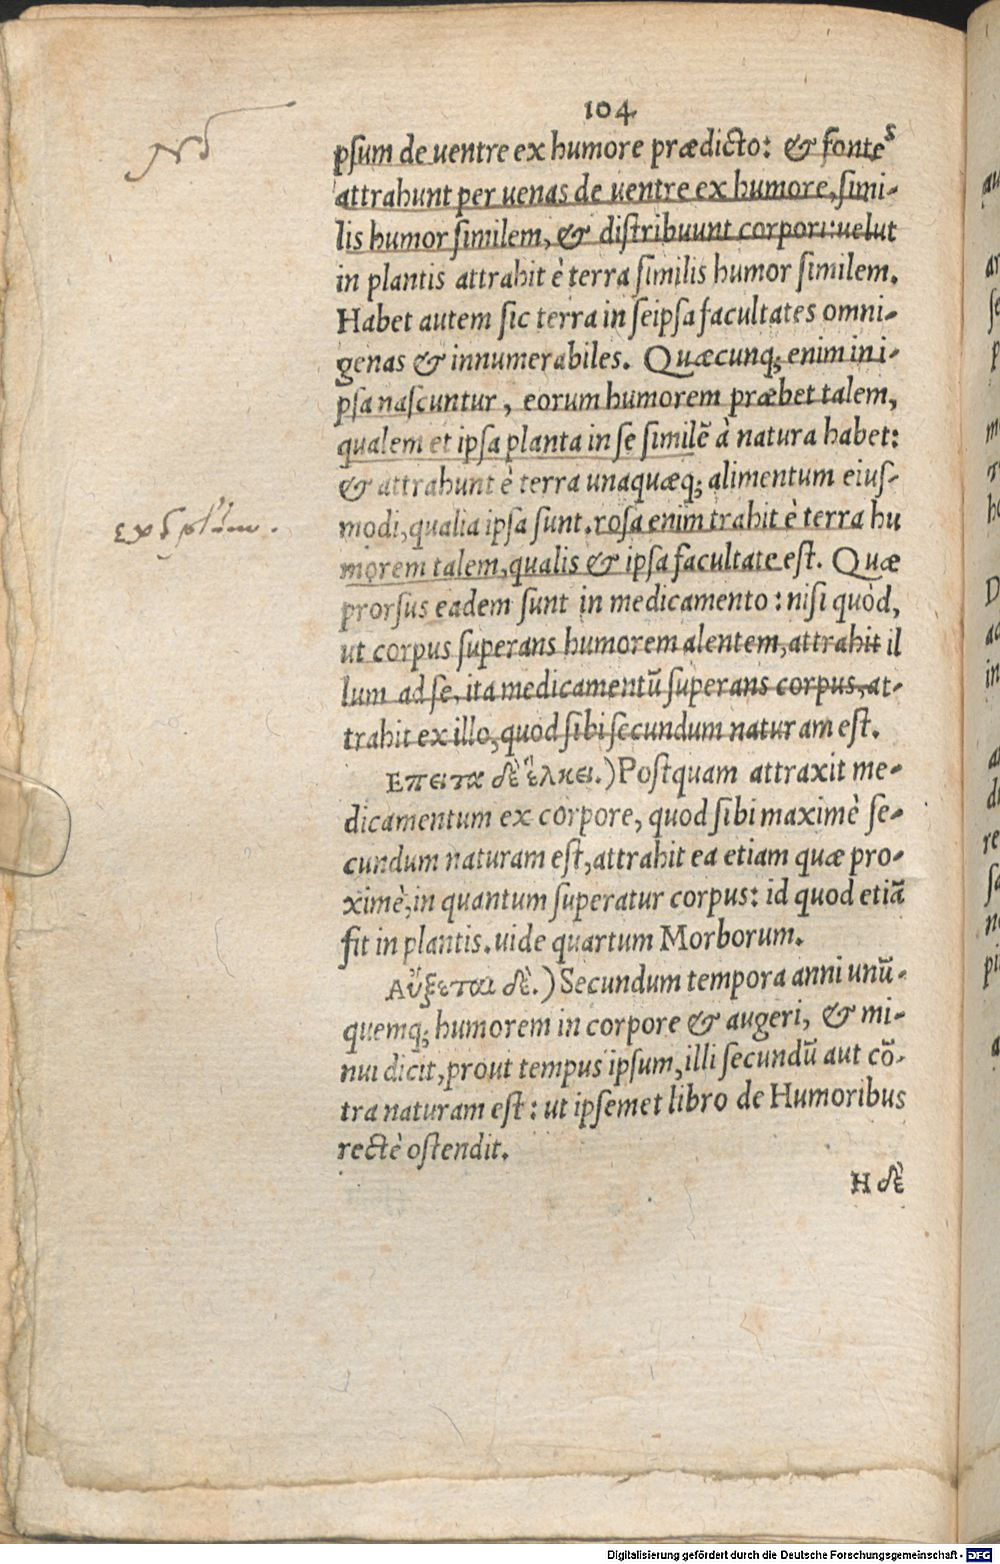 104
pſum de uentre ex humore prædicto: & fontes
attrahunt per uenas de uentre ex humore, ſimi-
lis humor ſimilem, & diſtribuunt corpori: uelut
in plantis attrahit è terra ſimilis humor ſimilem.
Habet autem ſic terra in ſeipſa facultates omni-
genas & innumerabiles. Quæcunq; enim in i-
pſa naſcuntur, eorum humorem præbet talem,
qualem et ipſa planta in ſe ſimilẽ à natura habet:
& attrahunt è terra unaquæq; alimentum eiuſ-
modi, qualia ipſa ſunt. roſa enim trahit è terra hu
morem talem, qualis & ipſa facultate eſt. Quæ
prorſus eadem ſunt in medicamento: niſi quòd,
ut corpus ſuperans humorem alentem, attrahit il
lum ad ſe, ita medicamentũ ſuperans corpus, at-
trahit ex illo, quod ſibi ſecundum naturam eſt.
Επειτα δὲ ἕλκει.) Poſtquam attraxit me-
dicamentum ex corpore, quod ſibi maximè ſe-
cundum naturam eſt, attrahit ea etiam quæ pro-
ximè, in quantum ſuperatur corpus: id quod etiã
fit in plantis. uide quartum Morborum.
Αὔξεται δὲ.) Secundum tempora anni unũ-
quemq; humorem in corpore & augeri, & mi-
nui dicit, prout tempus ipſum, illi ſecundũ aut cõ-
tra naturam eſt: ut ipſemet libro de Humoribus
rectè oſtendit.
Η δὲ
Digitalisierung gefördert durch die Deutsche Forschungsgemeinschaft - DFG